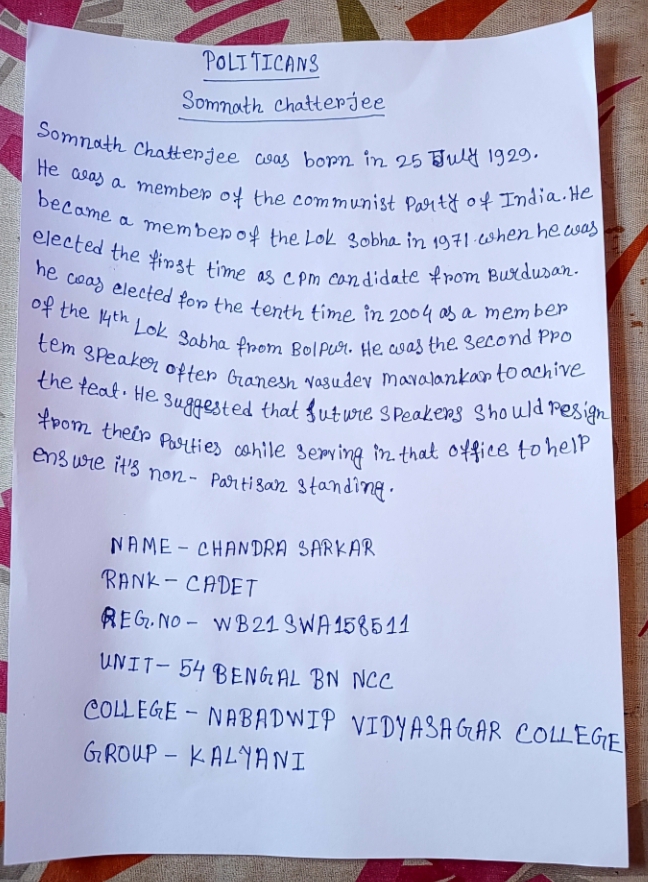 POLITICANS
Somnath Chatterjee
Somnath Chatterjee was born in 25 July 1929.
He was a member of the communist Party of India. He
became a member of the Lok Sobha in 1971 when he was
elected the first time as CPM candidate from Burdusan.
he was elected for the tenth time in 2004 as a member
of the 14th Lok Sabha from Bolpur. He was the second Pro
tem speaker ofter Ganesh vasudev mavalankar to achive
the feat. He suggested that future speakers should resign
from their Parties while serving in that office to help
ensure it's non - Partisan standing.
NAME - CHANDRA SARKAR
RANK - CADET
REG. NO - WB21SWA158511
UNIT - 54 BENGAL BN NCC
COLLEGE - NABADWIP VIDYASAGAR COLLEGE
GROUP - KALYANI